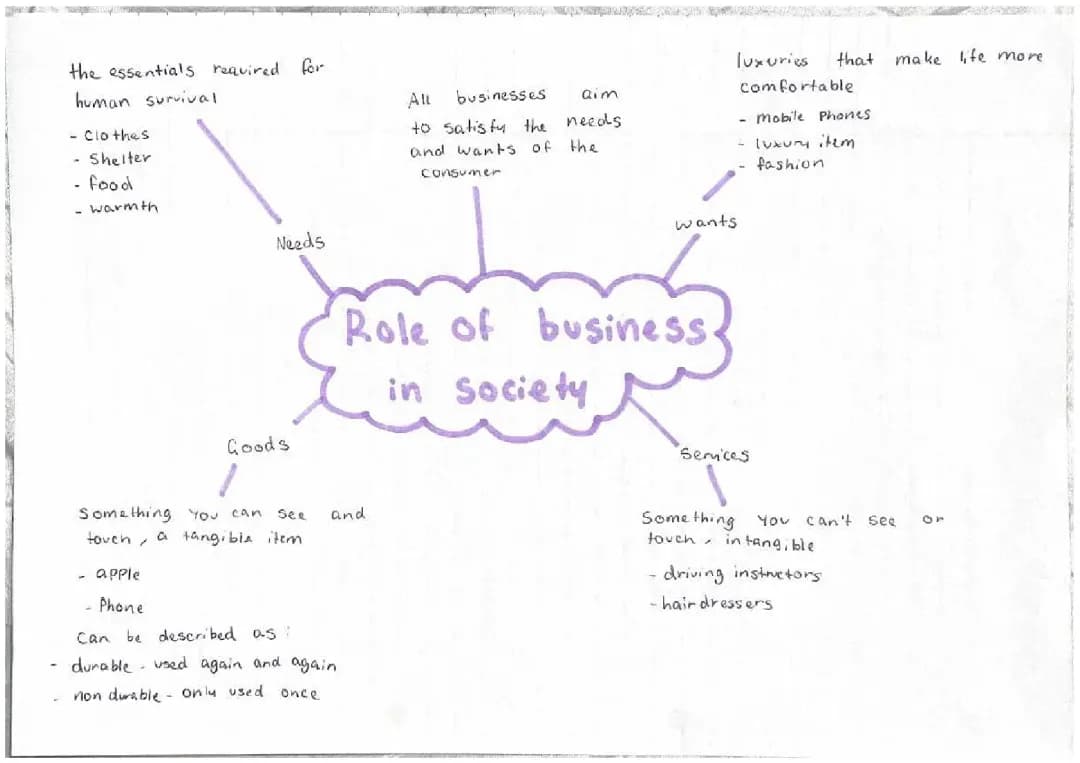 the essentials required for
human survival
- Clothes
- Shelter
- food
- warmth
Needs
All businesses aim
to satisfy the needs
and wants of the
consumer
luxuries that make life more
comfortable
- mobile Phones
- luxury item
- fashion
wants
Role of business
in society
Goods
Something you can see and
touch, a tangible item
- apple
- Phone
Can be described as:
- durable - used again and again
- non durable - only used once
Services
Something you can't see or
touch, intangible
- driving instructors
- hairdressers